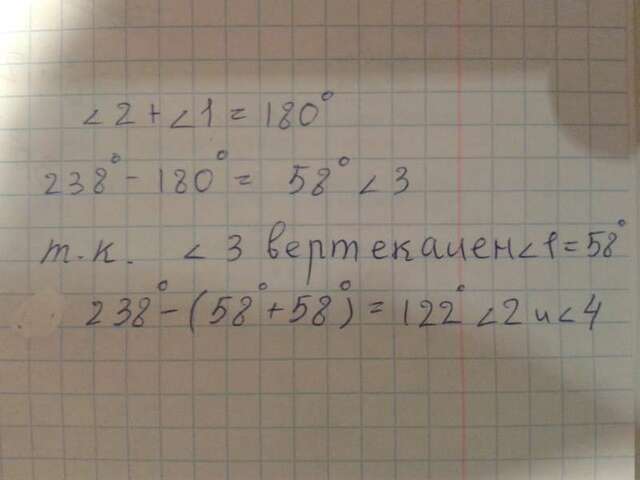 ∠2 + ∠1 = 180°
238° - 180° = 58° ∠3
т.к. ∠3 вертекален ∠1 = 58°
238° - (58° + 58°) = 122° ∠2 и ∠4